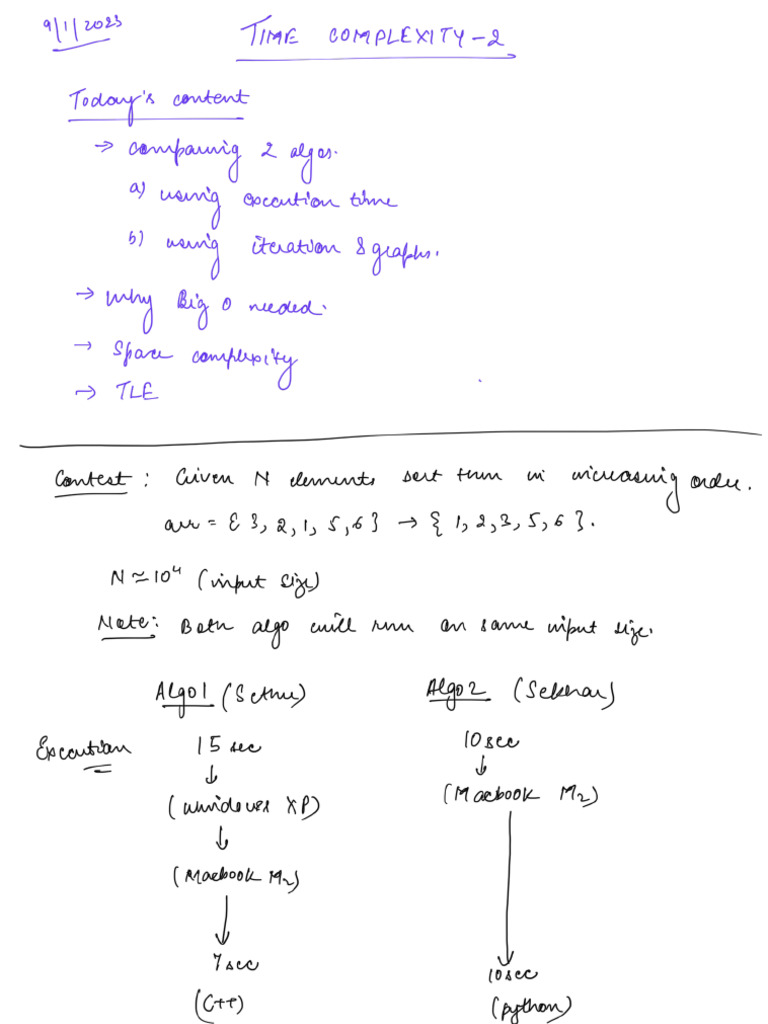 9/1/2023
TIME COMPLEXITY-2
Today's content
→ comparing 2 algos.
a) using execution time
b) using iteration & graphs.
→ Why Big O needed.
→ Space complexity
→ TLE
Contest : Given N elements sort them in increasing order.
arr = { 3, 2, 1, 5, 6 } → { 1, 2, 3, 5, 6 }.
N ≃ 10⁴ (input size)
Note: Both algo will run on same input size.
Algo1 (Sethu) Algo2 (Sekhar)
Execution 15 sec 10 sec
↓ ↓
(windows XP) (Macbook M2)
↓
(Macbook M2)
↓ ↓
7 sec 10 sec
(C++) (python)